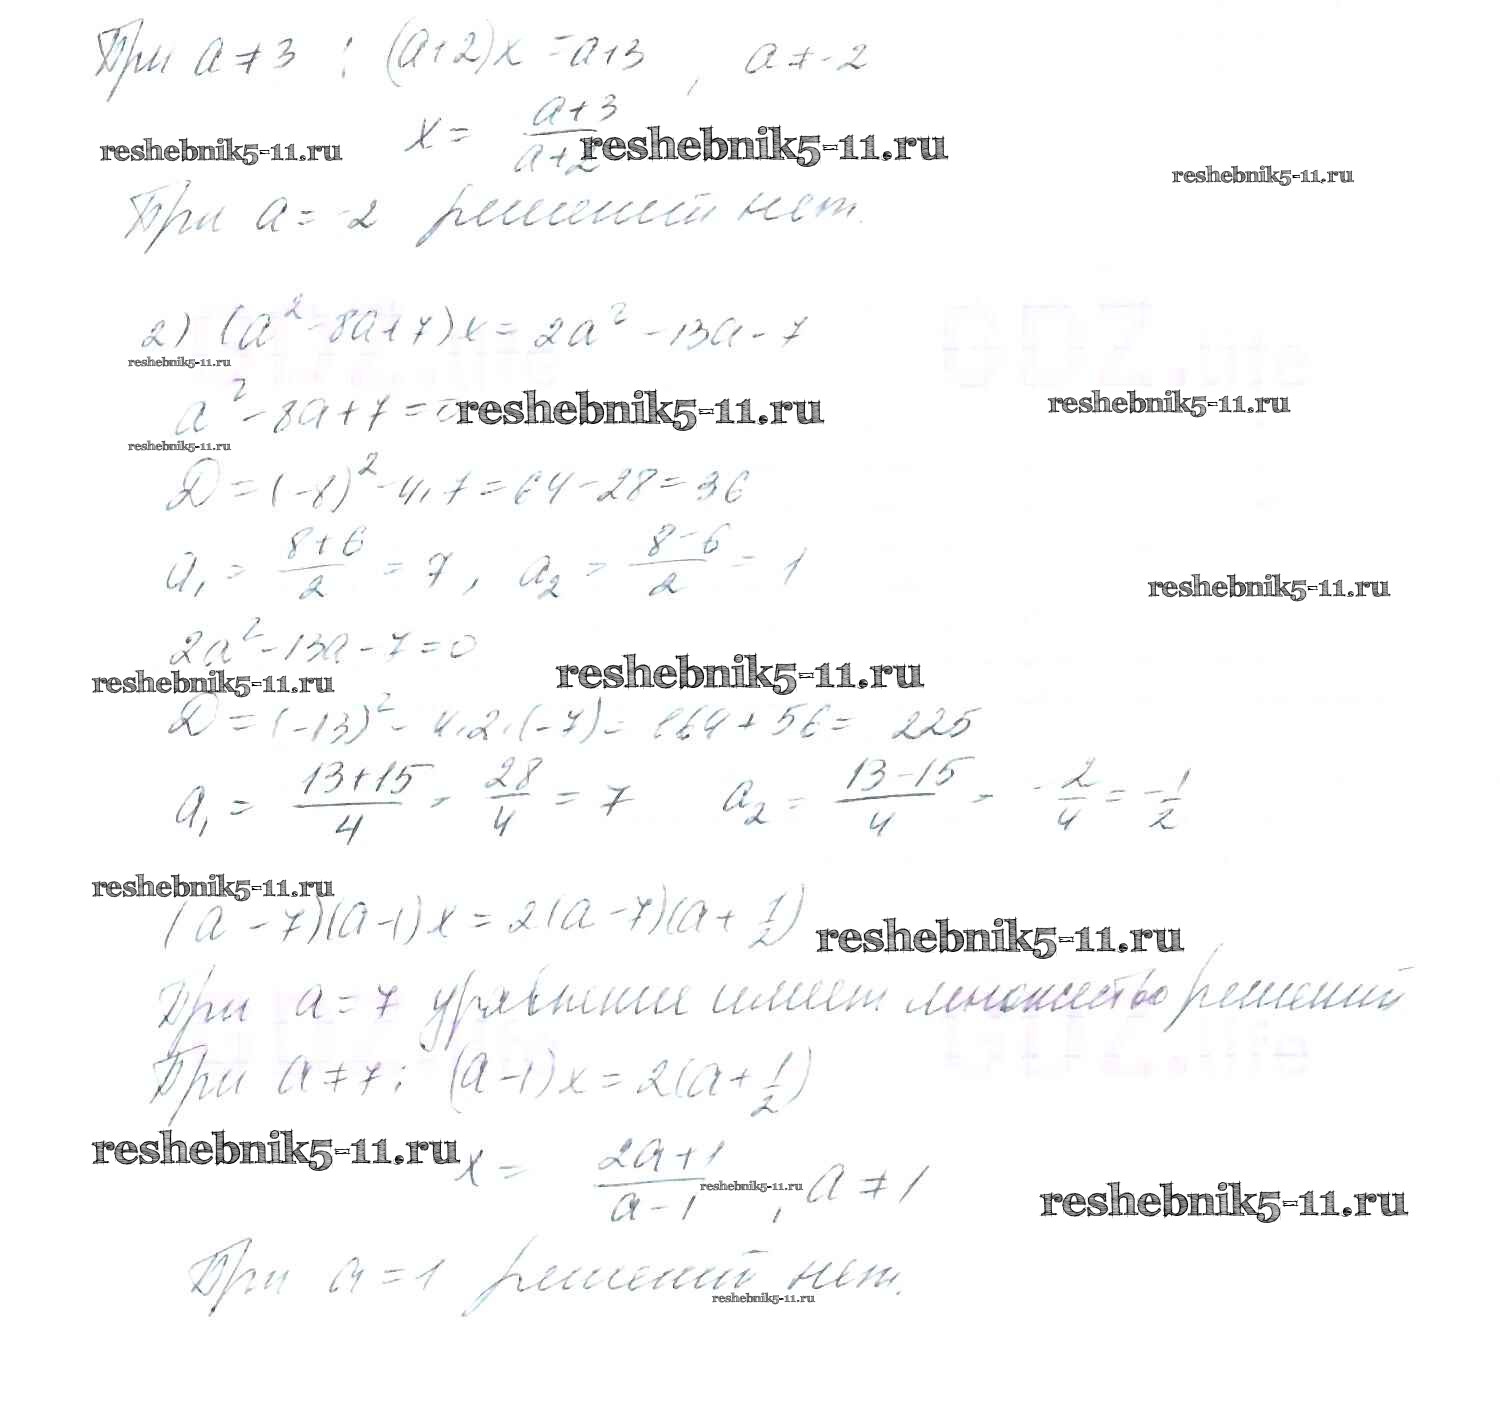 При a ≠ 3 : (a+2)x = a+3 , a ≠ -2
x = (a+3)/(a+2)
reshebnik5-11.ru reshebnik5-11.ru
reshebnik5-11.ru
При a = -2 решений нет.
2) (a² - 8a + 7)x = 2a² - 13a - 7
GDZ.life GDZ.life
reshebnik5-11.ru
a² - 8a + 7 = 0
reshebnik5-11.ru reshebnik5-11.ru
reshebnik5-11.ru
D = (-8)² - 4·7 = 64 - 28 = 36
a₁ = (8+6)/2 = 7, a₂ = (8-6)/2 = 1
reshebnik5-11.ru
2a² - 13a - 7 = 0
reshebnik5-11.ru reshebnik5-11.ru
D = (-13)² - 4·2·(-7) = 169 + 56 = 225
a₁ = (13+15)/4 = 28/4 = 7 a₂ = (13-15)/4 = -2/4 = -1/2
reshebnik5-11.ru
(a - 7)(a - 1)x = 2(a - 7)(a + 1/2)
reshebnik5-11.ru
При a = 7 уравнение имеет множество решений
GDZ.life GDZ.life
При a ≠ 7: (a - 1)x = 2(a + 1/2)
reshebnik5-11.ru
x = (2a+1)/(a-1) , a ≠ 1
reshebnik5-11.ru reshebnik5-11.ru
При a = 1 решений нет.
reshebnik5-11.ru